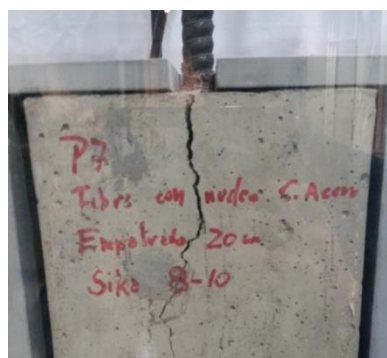 P7
Fibra con nucleo S. Acero
Empotrado 20 cm
Sika 8-10